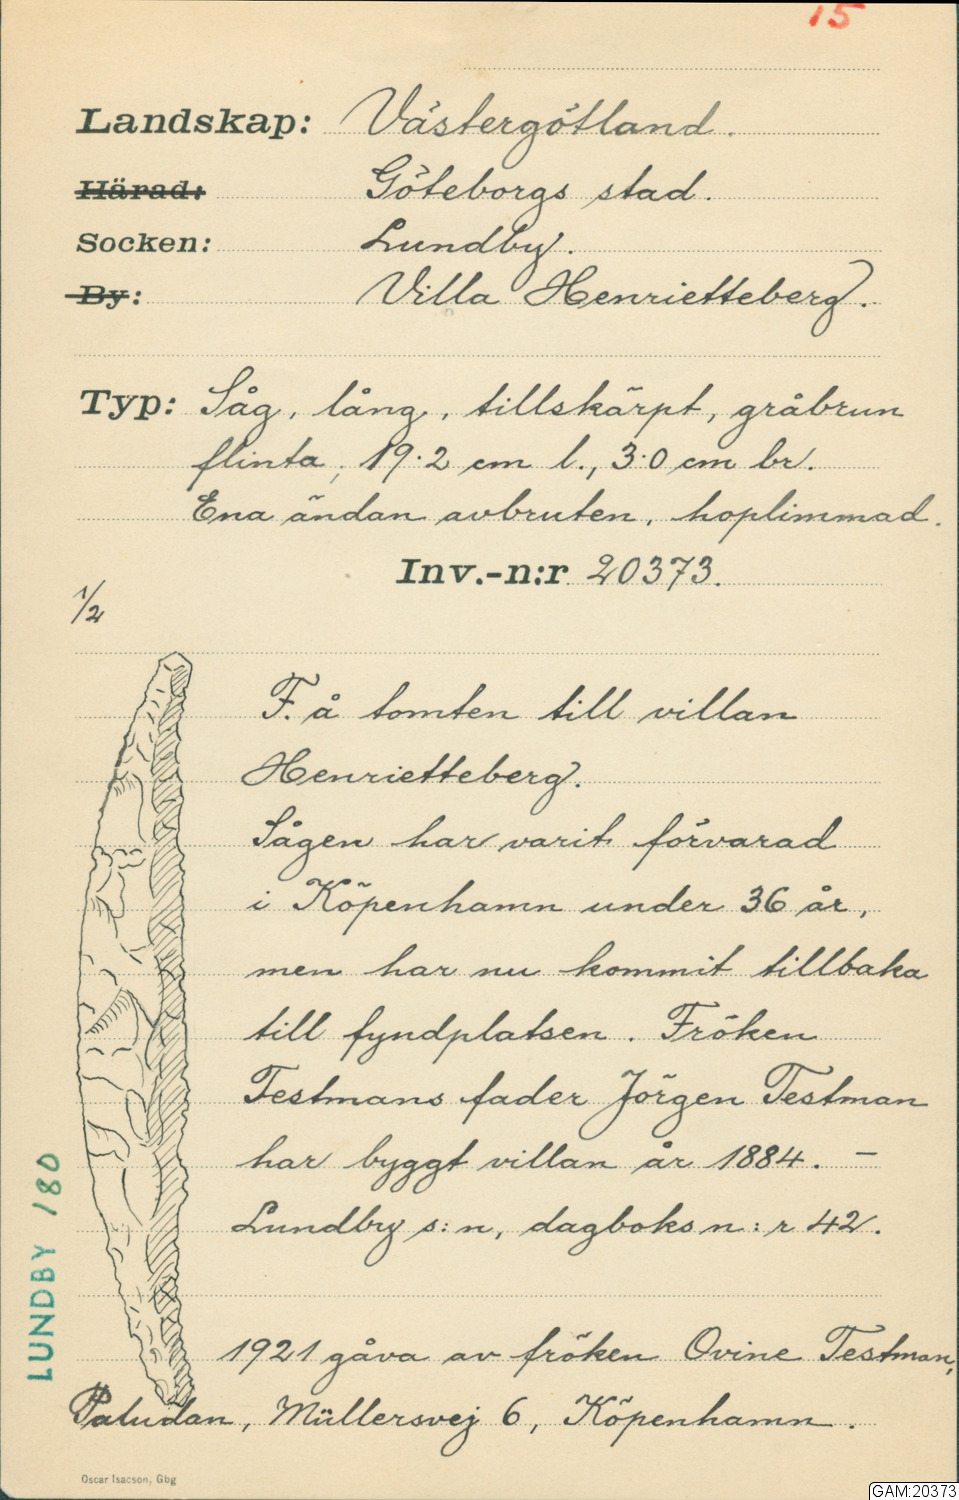 15
Landskap: Västergötland.
Härad: Göteborgs stad.
Socken: Lundby.
By: Villa Henrietteberg.
Typ: Såg, lång, tillskärpt, gråbrun
flinta, 19.2 cm l., 3.0 cm br.
Ena ändan avbruten, hoplimmad.
Inv.-n:r 20373.
1/2
F. å tomten till villan
Henrietteberg.
Sågen har varit förvarad
i Köpenhamn under 36 år,
men har nu kommit tillbaka
till fyndplatsen. Fröken
Testmans fader Jörgen Testman
har byggt villan år 1884. –
Lundby s:n, dagboks n:r 42.
LUNDBY 180
1921 gåva av fröken Ovine Testman,
Paludan, Müllersvej 6, Köpenhamn.
Oscar Isacson, Gbg
GAM:20373